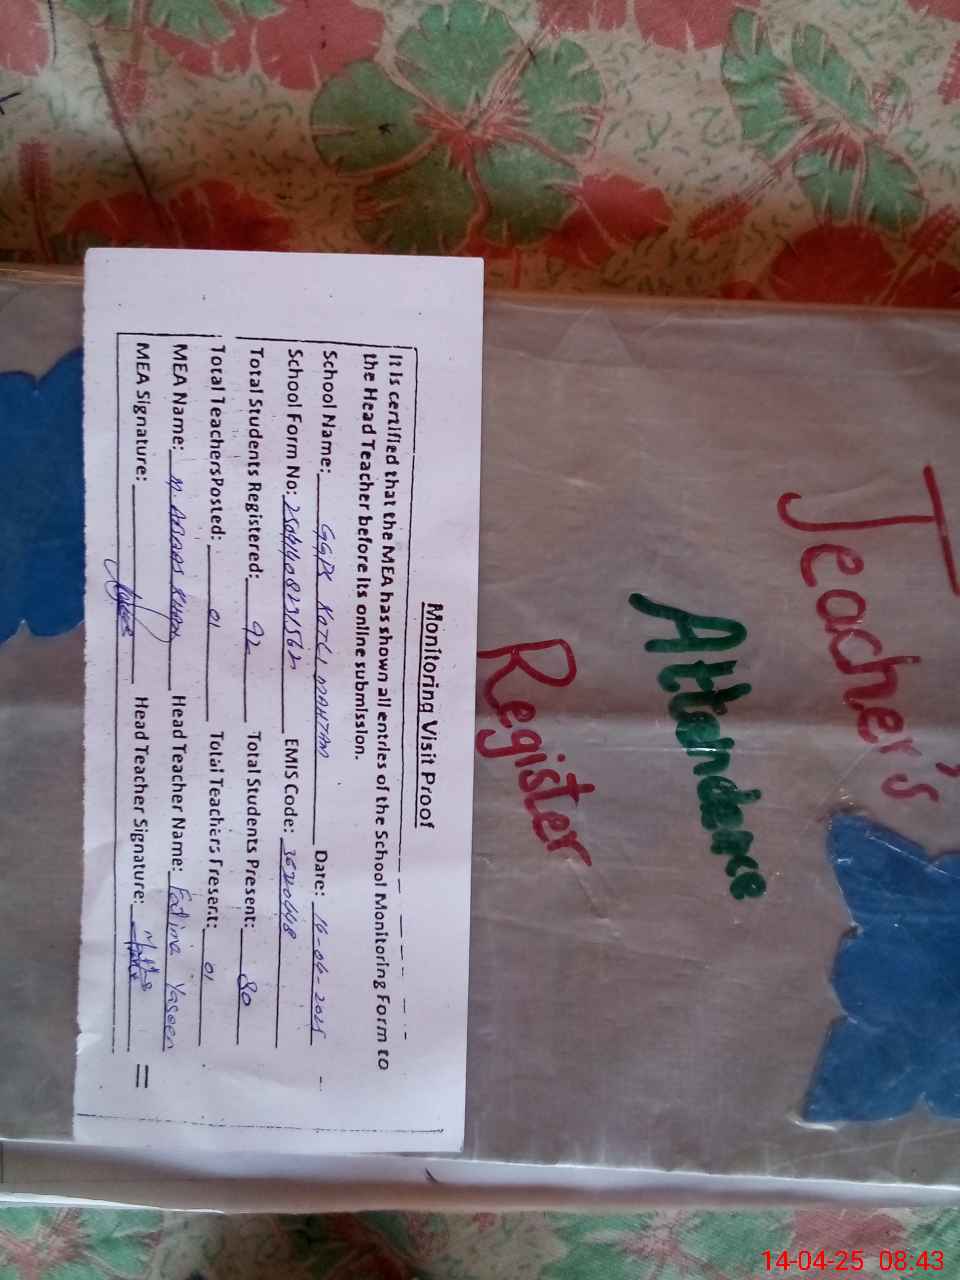 Teacher's
Attendance
Register
Monitoring Visit Proof
It is certified that the MEA has shown all entries of the School Monitoring Form to
the Head Teacher before its online submission.
School Name: GGPS KOTLI Date:
School Form No: EMIS Code:
Total Students Registered: 92 Total Students Present: 80
Total TeachersPosted: 01 Total Teachers Present: 01
MEA Name: KHAN Head Teacher Name: Fatima Yaseen
MEA Signature: Head Teacher Signature:
14-04-25 08:43